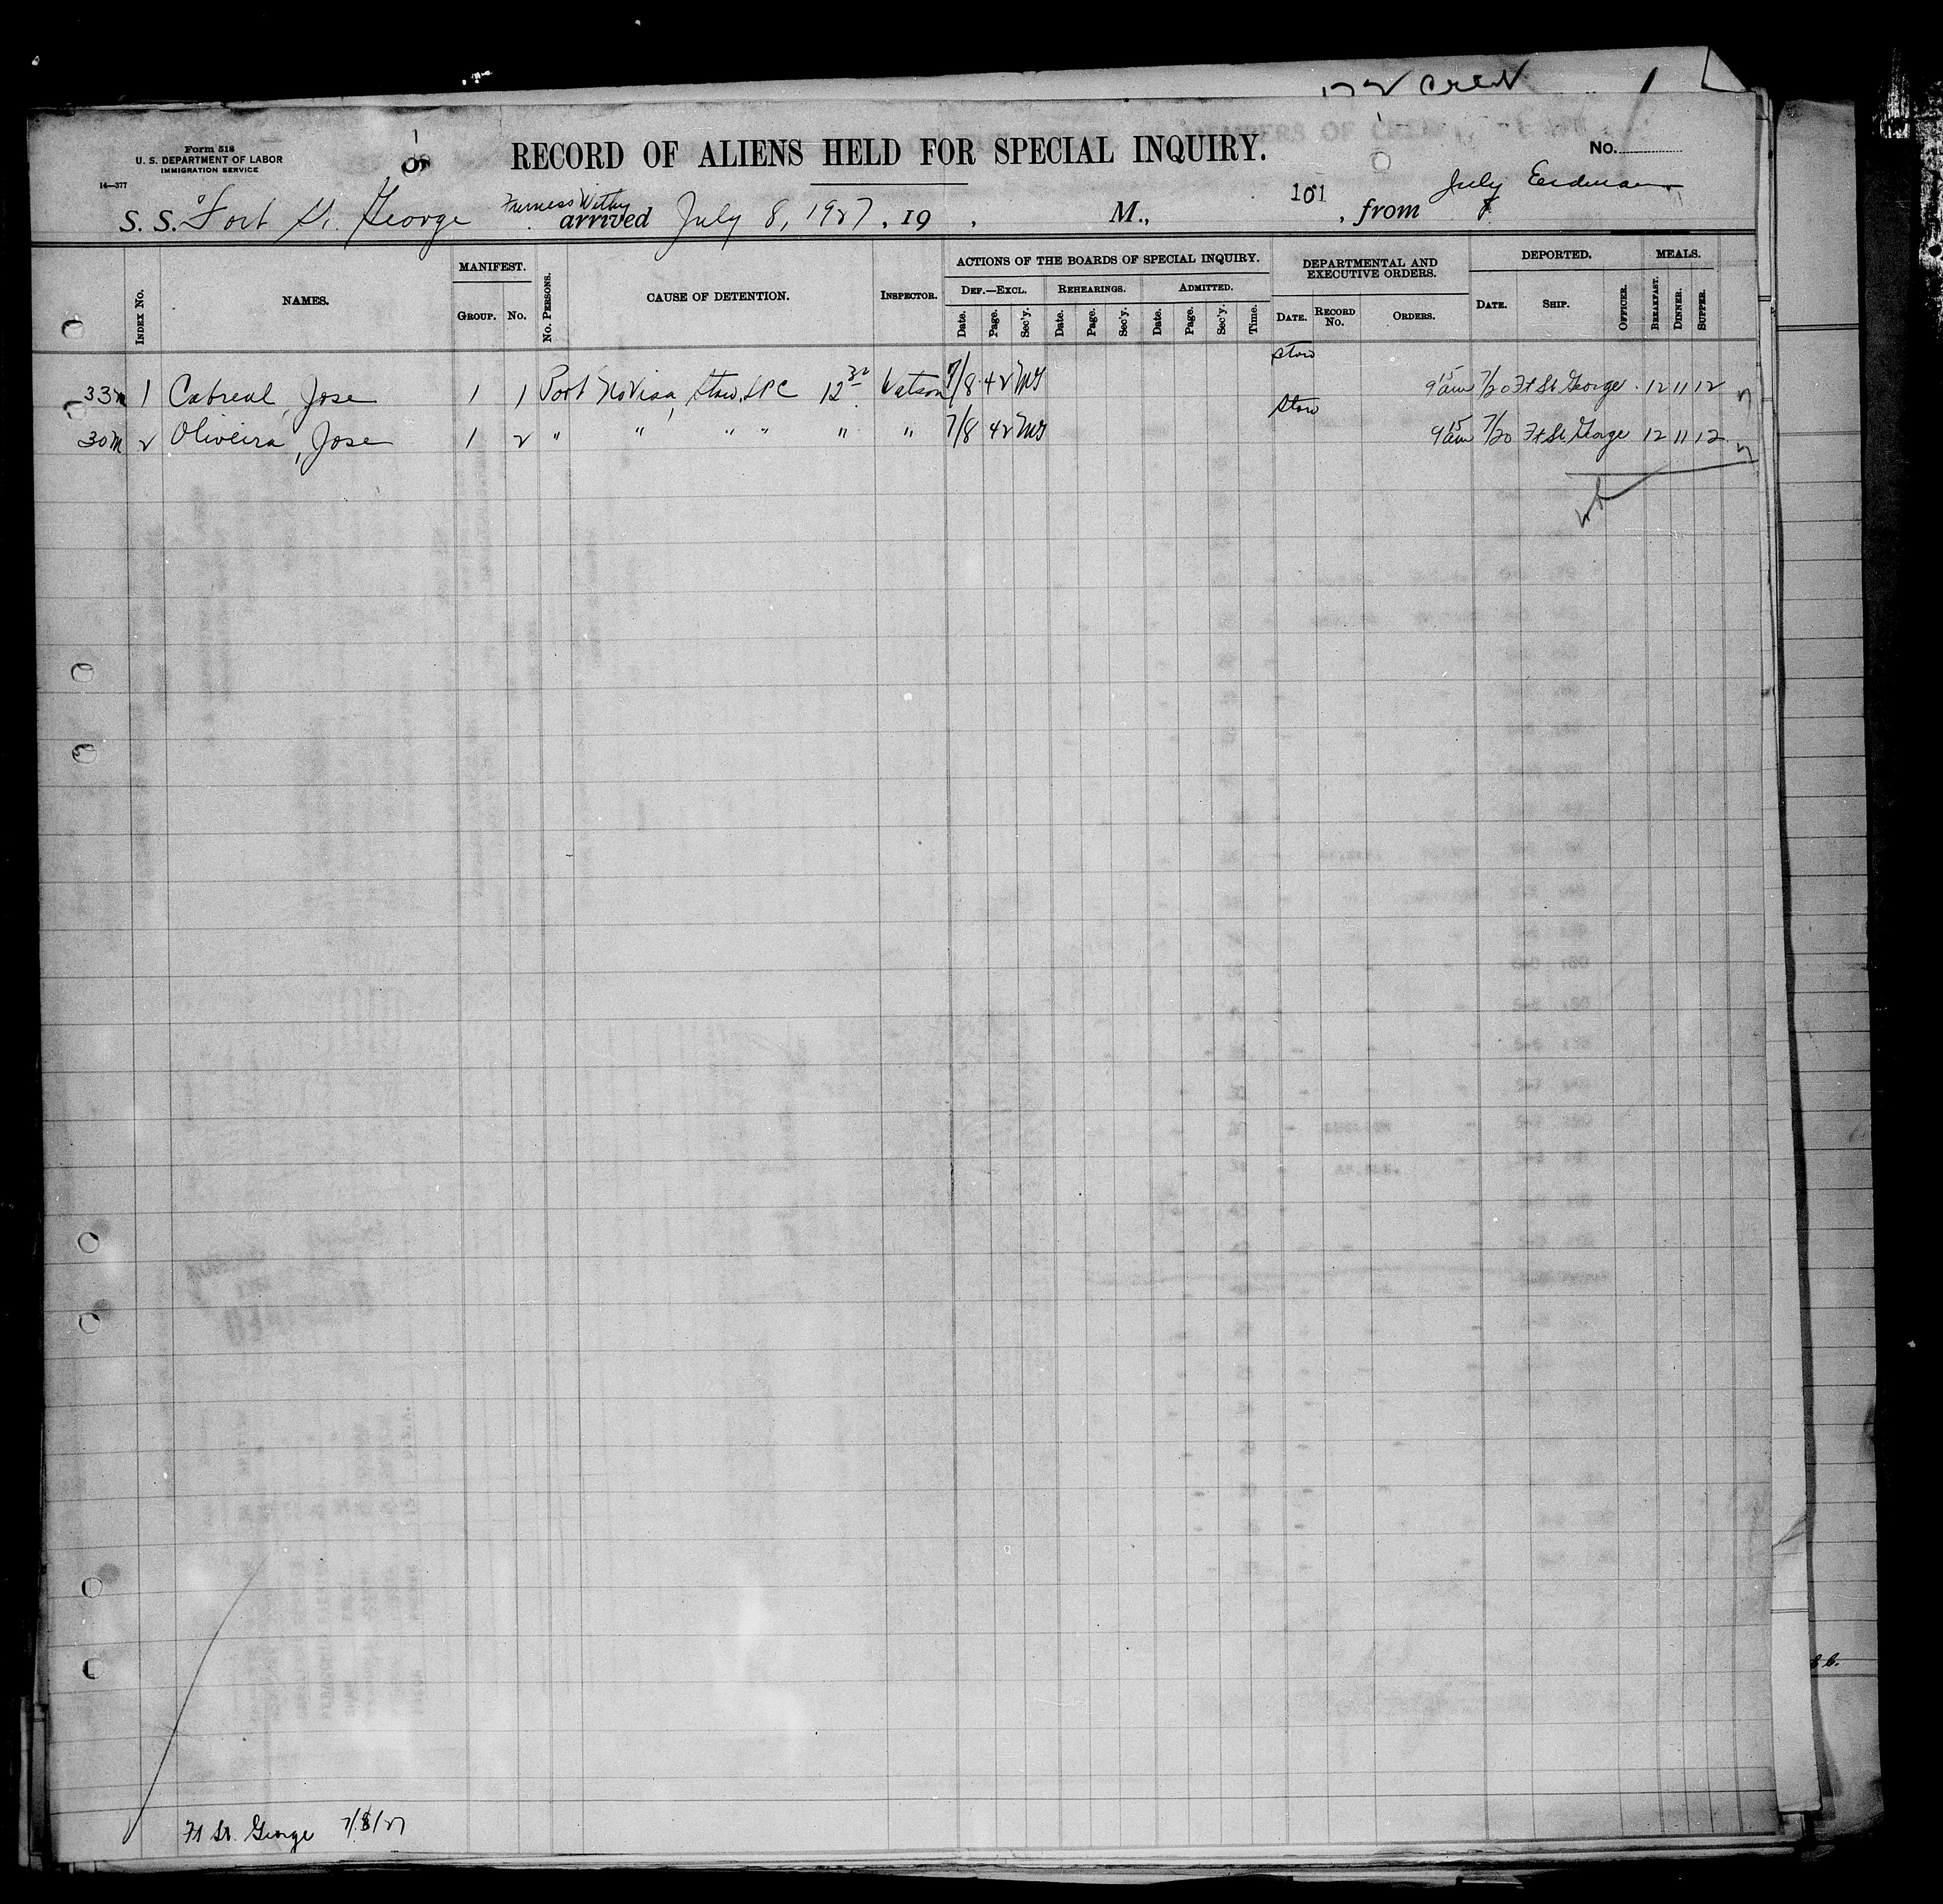 crew 1
Form 518
U. S. DEPARTMENT OF LABOR
IMMIGRATION SERVICE
14—377
RECORD OF ALIENS HELD FOR SPECIAL INQUIRY.
No.
S. S. Fort St. George Furness Withy arrived July 8, 1927, 19 , M., 101 , from July
INDEX NO. NAMES. MANIFEST. GROUP. NO. NO. PERSONS. CAUSE OF DETENTION. INSPECTOR. ACTIONS OF THE BOARDS OF SPECIAL INQUIRY. DEF.—EXCL. Date. Page. Sec'y. REHEARINGS. Date. Page. Sec'y. ADMITTED. Date. Page. Sec'y. Time. DEPARTMENTAL AND EXECUTIVE ORDERS. DATE. RECORD NO. ORDERS. DEPORTED. DATE. SHIP. OFFICER. MEALS. BREAKFAST. DINNER. SUPPER.
stow
33m 1 Cabreal, Jose 1 1 Port No Visa, Stow, LPC 12 30 Watson 7/8 42 9 15 am 7/20 Ft St. George 12 11 12
stow
30m 2 Oliveira, Jose 1 2 " " " " " " 7/8 42 9 15 am 7/20 Ft St. George 12 11 12
Ft St. George 7/8/27